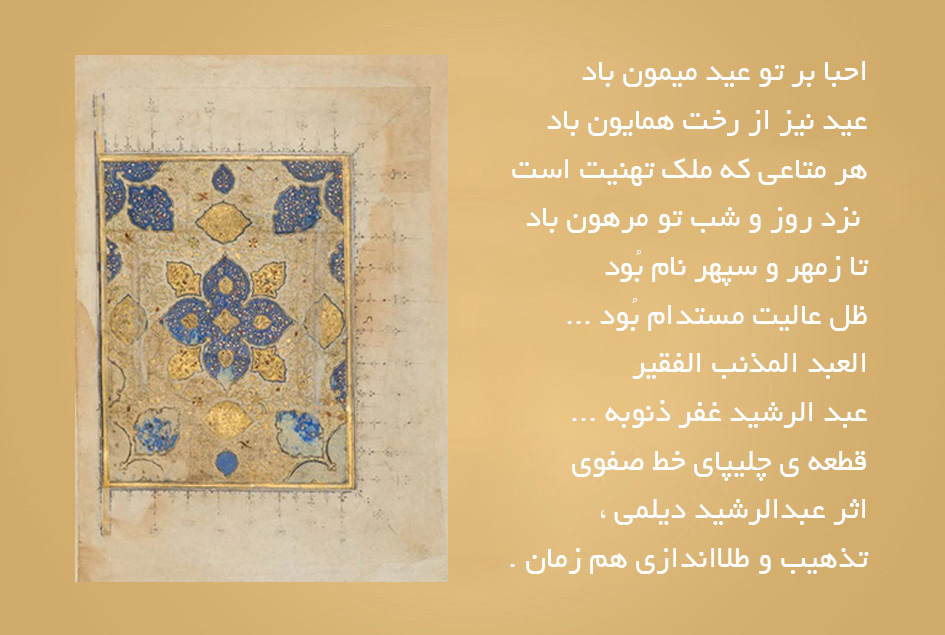 احبا بر تو عید میمون باد
عید نیز از رخت همایون باد
هر متاعی که ملک تهنیت است
نزد روز و شب تو مرهون باد
تا زمهر و سپهر نام بُود
ظل عالیت مستدام بُود ...
العبد المذنب الفقیر
عبد الرشید غفر ذنوبه ...
قطعه ی چلیپای خط صفوی
اثر عبدالرشید دیلمی ،
تذهیب و طلااندازی هم زمان .